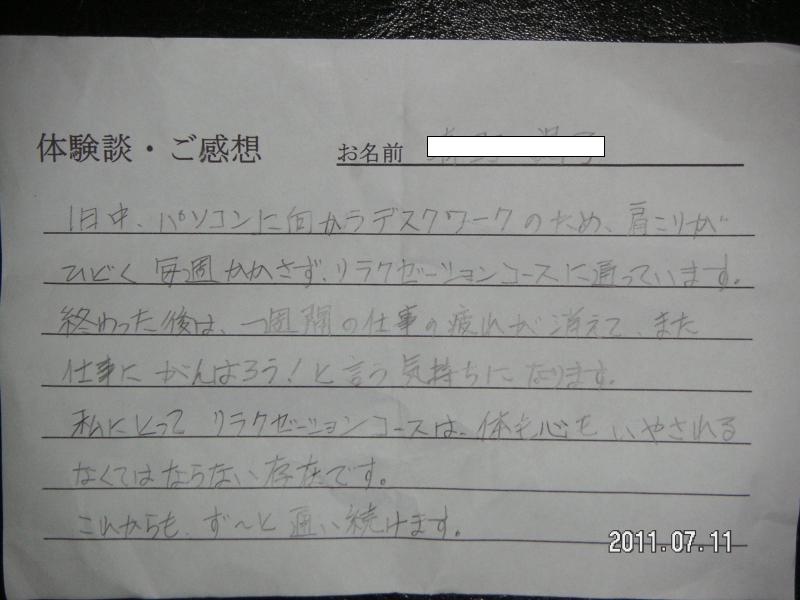 体験談・ご感想
お名前
1日中、パソコンに向かうデスクワークのため、肩こりが
ひどく毎週かかさず、リラクゼーションコースに通っています。
終わった後は、一週間の仕事の疲れが消えて、また
仕事にがんばろう！と言う気持ちになります。
私にとってリラクゼーションコースは、体も心もいやされる
なくてはならない存在です。
これからも、ず〜と通い続けます。
2011.07.11